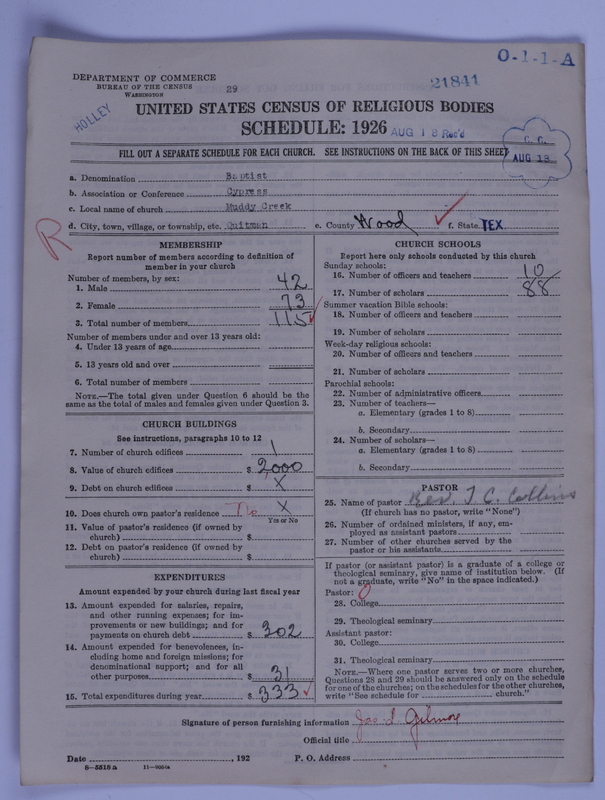 O-1-1-A
DEPARTMENT OF COMMERCE
BUREAU OF THE CENSUS
WASHINGTON
29
21841
HOLLEY
UNITED STATES CENSUS OF RELIGIOUS BODIES
SCHEDULE: 1926
AUG 18 Rec'd
C. C.
AUG 18
FILL OUT A SEPARATE SCHEDULE FOR EACH CHURCH. SEE INSTRUCTIONS ON THE BACK OF THIS SHEET
a. Denomination Baptist
b. Association or Conference Cypress
c. Local name of church Muddy Creek
d. City, town, village, or township, etc. Quitman e. County Wood f. State TEX.
R
MEMBERSHIP
Report number of members according to definition of
member in your church
Number of members, by sex:
1. Male 42
2. Female 73
3. Total number of members 115
Number of members under and over 13 years old:
4. Under 13 years of age
5. 13 years old and over
6. Total number of members
NOTE.—The total given under Question 6 should be the
same as the total of males and females given under Question 3.
CHURCH BUILDINGS
See instructions, paragraphs 10 to 12
7. Number of church edifices 1
8. Value of church edifices $ 2000
9. Debt on church edifices $ X
10. Does church own pastor's residence No X
Yes or No
11. Value of pastor's residence (if owned by
church) $
12. Debt on pastor's residence (if owned by
church) $
EXPENDITURES
Amount expended by your church during last fiscal year
13. Amount expended for salaries, repairs,
and other running expenses; for im-
provements or new buildings; and for
payments on church debt $ 302
14. Amount expended for benevolences, in-
cluding home and foreign missions; for
denominational support; and for all
other purposes $ 31
15. Total expenditures during year $ 333
CHURCH SCHOOLS
Report here only schools conducted by this church
Sunday schools:
16. Number of officers and teachers 10
17. Number of scholars 88
Summer vacation Bible schools:
18. Number of officers and teachers
19. Number of scholars
Week-day religious schools:
20. Number of officers and teachers
21. Number of scholars
Parochial schools:
22. Number of administrative officers
23. Number of teachers—
a. Elementary (grades 1 to 8)
b. Secondary
24. Number of scholars—
a. Elementary (grades 1 to 8)
b. Secondary
PASTOR
25. Name of pastor Rev. T. C. Collins
(If church has no pastor, write "None")
26. Number of ordained ministers, if any, em-
ployed as assistant pastors
27. Number of other churches served by the
pastor or his assistants
If pastor (or assistant pastor) is a graduate of a college or
theological seminary, give name of institution below. (If
not a graduate, write "No" in the space indicated.)
Pastor: 0
28. College
29. Theological seminary
Assistant pastor:
30. College
31. Theological seminary
NOTE.—Where one pastor serves two or more churches,
Questions 28 and 29 should be answered only on the schedule
for one of the churches; on the schedules for the other churches,
write "See schedule for church."
Signature of person furnishing information Gilmore
Official title
Date , 192 P. O. Address
8-5518 a